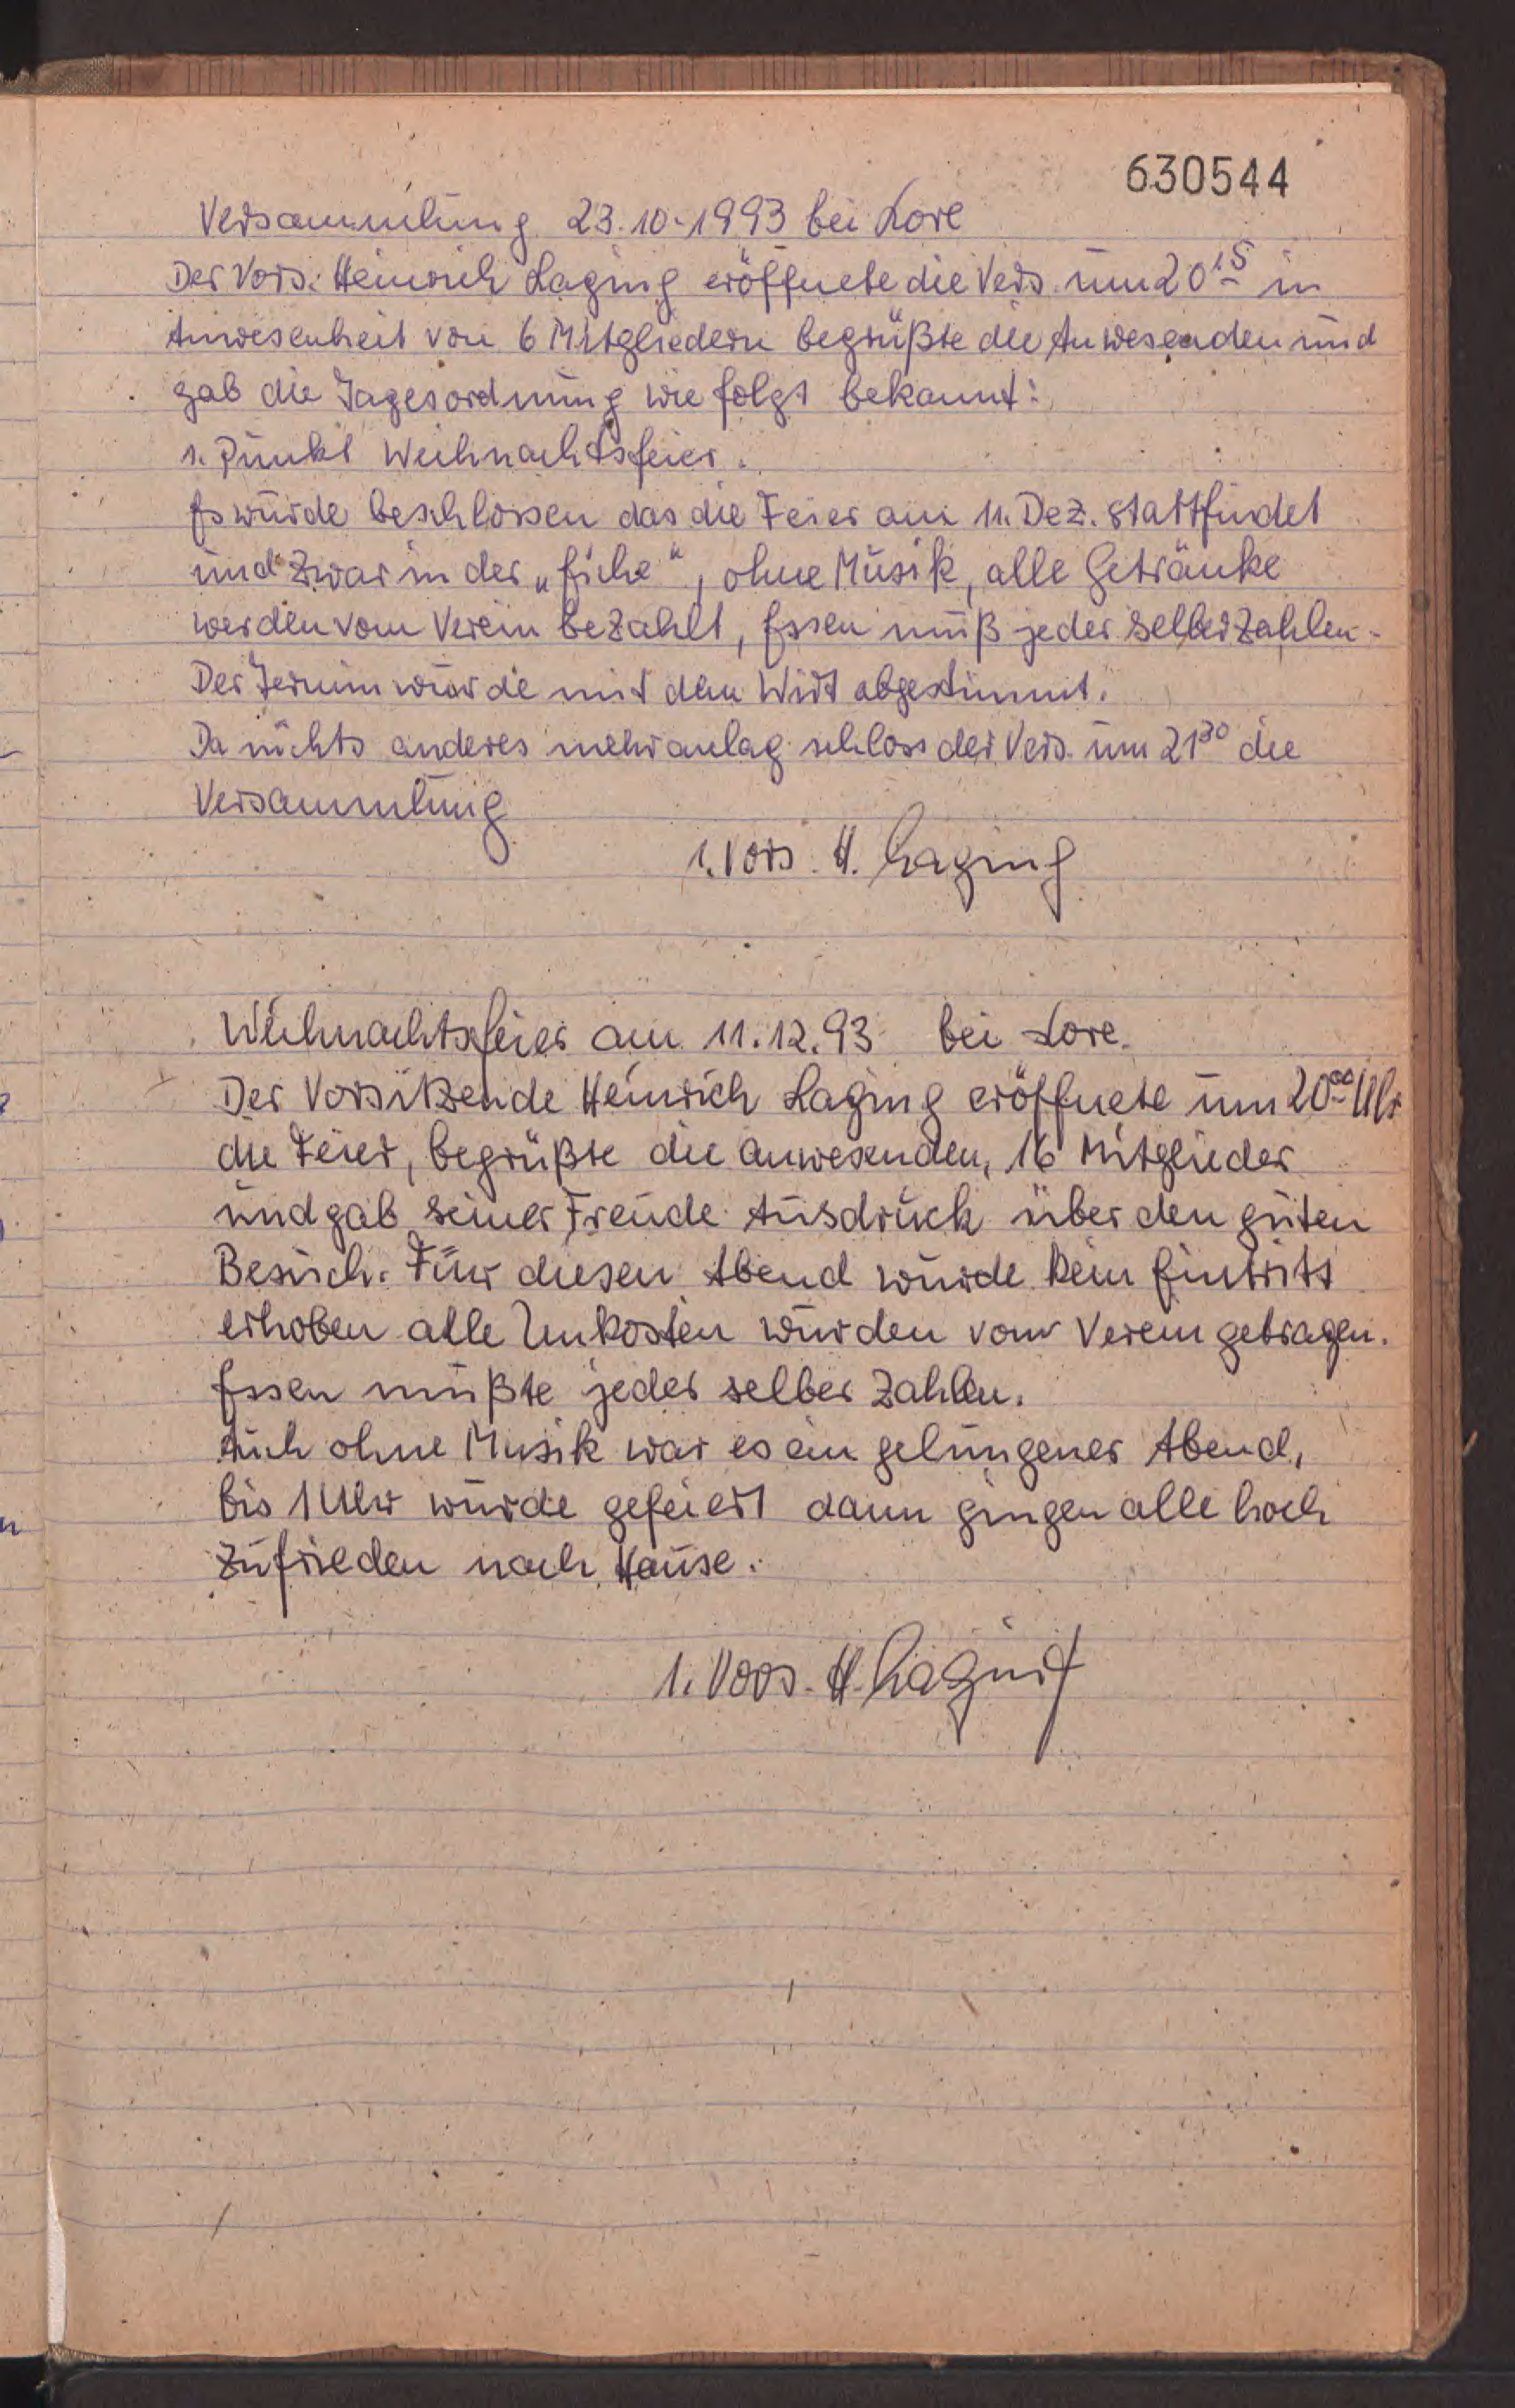 630544
Versammlung 23.10.1993 bei Lore
Der Vors. Heinrich Laging eröffnete die Vers. um 20¹⁵ in
Anwesenheit von 6 Mitgliedern begrüßte die Anwesenden und
gab die Tagesordnung wie folgt bekannt:
1. Punkt Weihnachtsfeier.
Es wurde beschlossen das die Feier am 11. Dez. stattfindet
und zwar in der „Eiche", ohne Musik, alle Getränke
werden vom Verein bezahlt, Essen muß jeder selber zahlen.
Der Termin wurde mit dem Wirt abgestimmt.
Da nichts anderes mehr anlag schloss der Vors. um 21³⁰ die
Versammlung
1. Vors. H. Laging
Weihnachtsfeier am 11.12.93 bei Lore.
Der Vorsitzende Heinrich Laging eröffnete um 20⁰⁰ Uhr
die Feier, begrüßte die anwesenden, 16 Mitglieder
und gab seiner Freude Ausdruck über den guten
Besuch. Für diesen Abend wurde kein Eintritt
erhoben alle Unkosten wurden vom Verein getragen.
Essen mußte jeder selber zahlen.
Auch ohne Musik war es ein gelungener Abend,
bis 1 Uhr wurde gefeiert dann gingen alle hoch
zufrieden nach Hause.
1. Vors. H. Laging